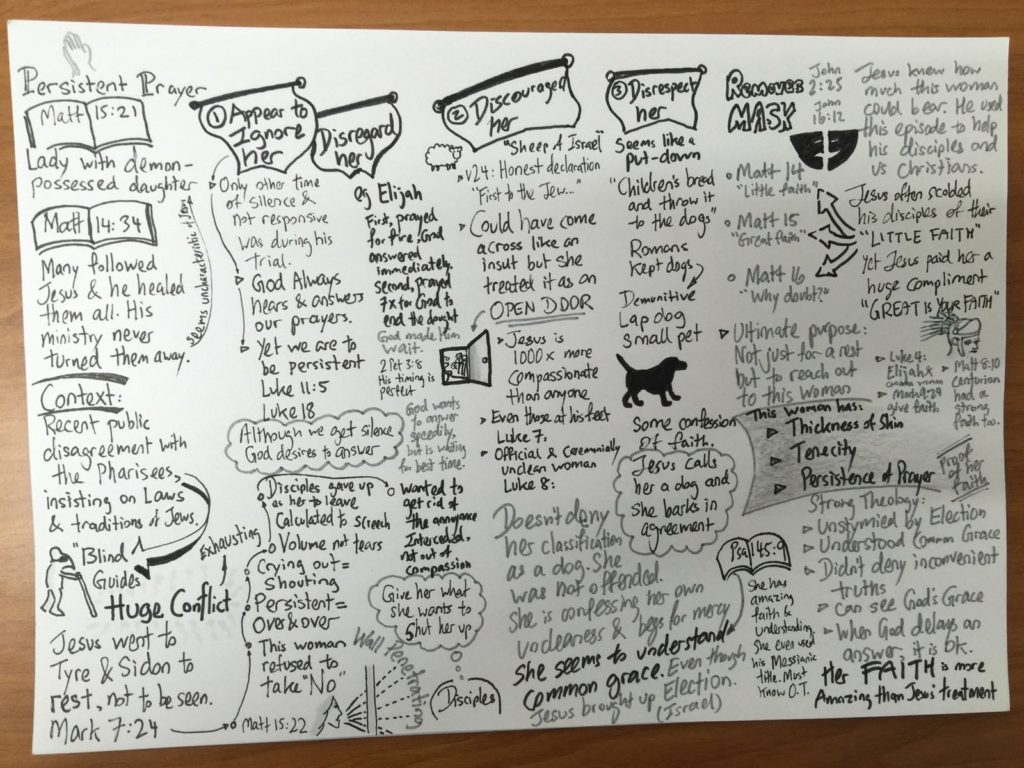 Persistent Prayer
Matt 15:21
Lady with demon-
possessed daughter
Matt 14:34
Many followed
Jesus & he healed
them all. His
ministry never
turned them away.
Seems uncharacteristic of Jesus
Context:
Recent public
disagreement with
the Pharisees,
insisting on Laws
& traditions of Jews.
"Blind
Guides"
Huge Conflict
Exhausting
Jesus went to
Tyre & Sidon to
rest, not to be seen.
Mark 7:24
① Appear to
Ignore
her
Disregard
her
Only other time
of silence &
not responsive
was during his
trial.
God Always
hears & answers
our prayers.
Yet we are to
be persistent
Luke 11:5
Luke 18
Although we get silence
God desires to answer
Disciples gave up
as her to leave
Calculated to screech
Volume not tears
Crying out=
Shouting
Persistent=
Over & over
This woman
refused to
take "No"
Matt 15:22
Wall Penetrating
eg Elijah
First, prayed
for fire. God
answered
immediately.
second, prayed
7x for God to
end the dought
God made Him
wait.
2 Pet 3:8
His timing is
perfect
God wants
to answer
speedily.
but is waiting
for best time.
Wanted to
get rid of
the annoyance
Interceded,
not out of
compassion
Give her what
she wants to
shut her up
Disciples
② Discouraged
her
"Sheep of Israel"
v24: Honest declaration
"First to the Jew..."
Could have come
across like an
insut but she
treated it as an
OPEN DOOR
Jesus is
1000x more
Compassionate
than anyone.
Even those at his feet
Luke 7,
Official & Ceremonially
unclean woman
Luke 8:
Doesn't deny
her classification
as a dog. She
was not offended.
She is confessing her own
uncleaness & begs for mercy
She seems to understand
common grace. Even though
Jesus brought up Election.
(Israel)
③ Disrespect
her
Seems like a
put-down
"Children's bread
and throw it
to the dogs"
Romans
kept dogs
Demunitive
Lap dog
small pet
Some confession
of faith.
Jesus calls
her a dog and
she barks in
agreement
Psa 145:9
She has
amazing
faith &
understanding
She even used
his Messianic
title. Must
know O.T.
Removes
MASK
John
2:25
John
16:12
Jesus knew how
much this woman
could bear. He used
this episode to help
his disciples and
us Christians.
Matt 14
"Little faith"
Matt 15
"Great faith"
Matt 16
"Why doubt?"
Jesus often scolded
his disciples of their
"LITTLE FAITH"
Yet Jesus paid her a
huge compliment
"GREAT IS YOUR FAITH"
Ultimate purpose:
Not just for a rest
but to reach out
to this woman
Luke 4:
Elijah &
woman
Mark 9:29
give faith.
Matt 8:10
Centurian
had a
strong
faith too.
This woman has:
Thickness of Skin
Tenecity
Persistence of Prayer
Proof
of her
faith
Strong Theology:
Unstymied by Election
Understood Common Grace
Didn't deny inconvenient
truths
Can see God's Grace
When God delays an
answer, it is ok.
Her FAITH is more
Amazing than Jesus' treatment